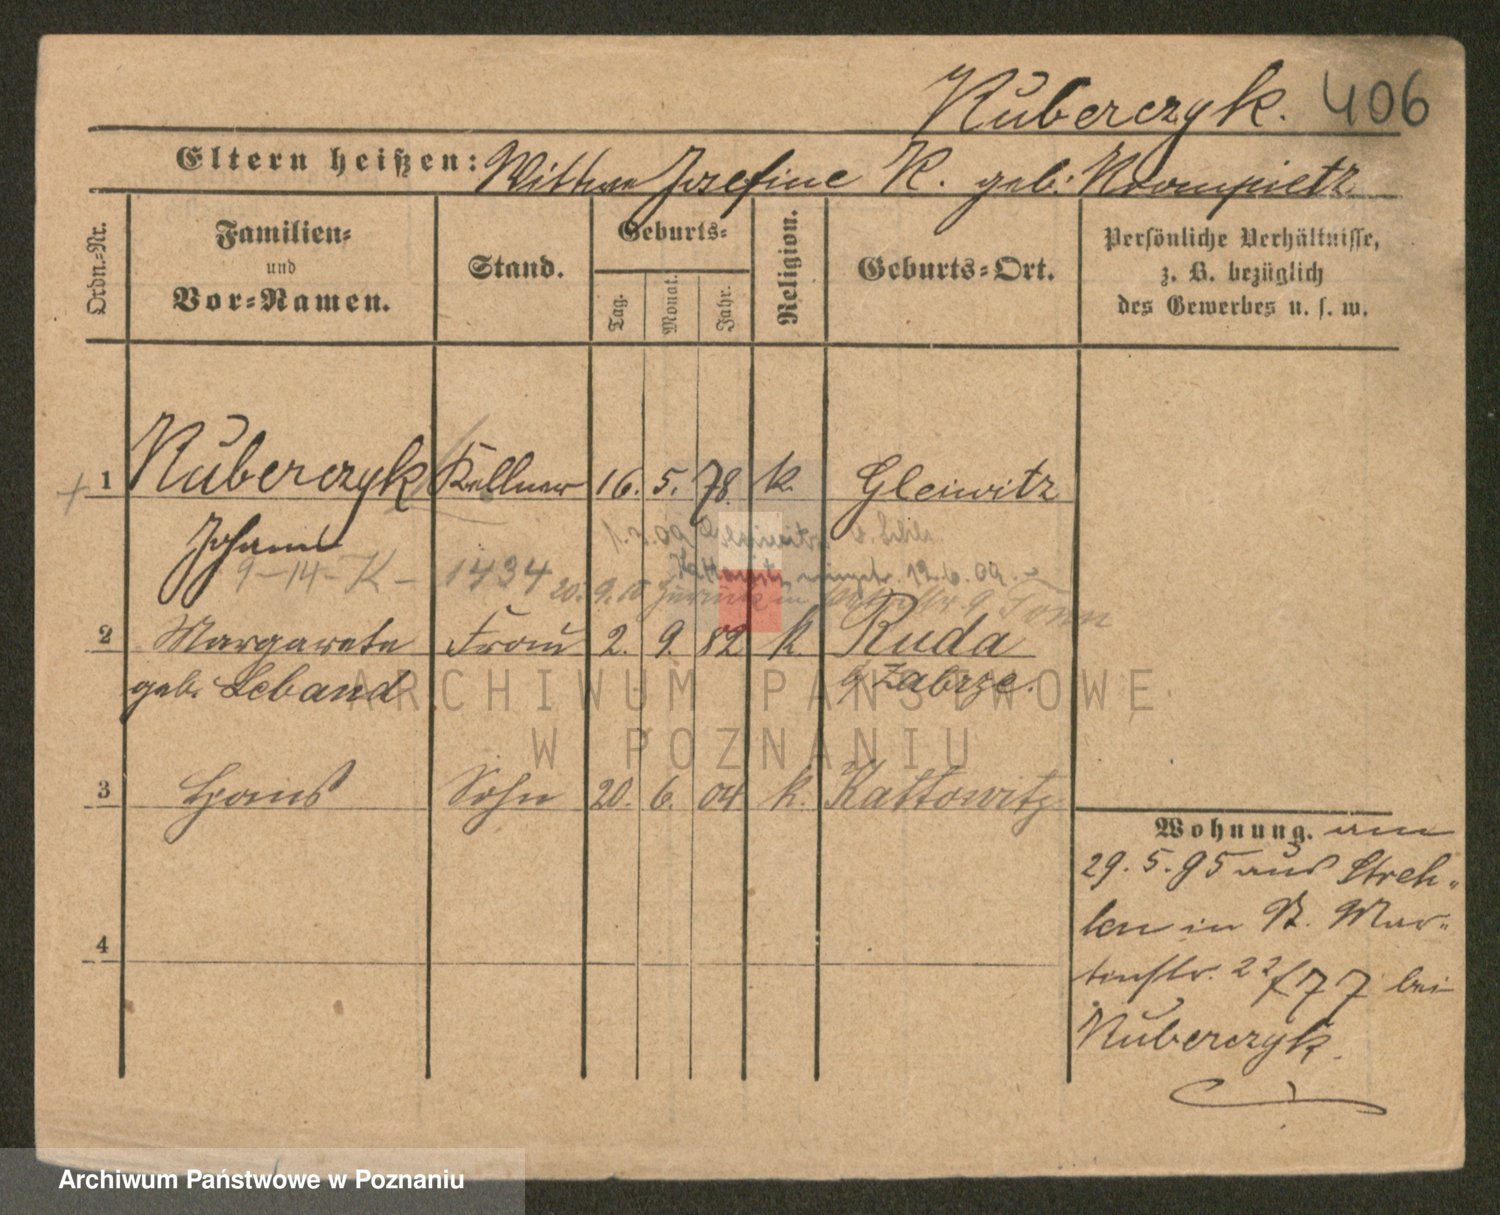 Kuberczyk. 406
Eltern heißen: Wittwe Josefine K. geb: Krompietz
Ordn.-Nr.
Familien-
und
Vor-Namen.
Stand.
Geburts-
Tag.
Monat.
Jahr.
Religion.
Geburts-Ort.
Persönliche Verhältnisse,
z. B. bezüglich
des Gewerbes u. s. w.
1 Kuberczyk Kellner 16. 5. 78. k. Gleiwitz
Johann
9-14-K- 1434
12.6.09.
20.9.10 zurück in
2 Margarete Frau 2. 9. 82 k. Ruda
geb. Leband b/ Zabrze.
3 Hans Sohn 20. 6. 04 k. Kattowitz
4
Wohnung. am
29.5.95 aus Streh-
len in St. Mar-
tinstr. 22/77 bei
Kuberczyk.
ARCHIWUM PAŃSTWOWE
W POZNANIU
Archiwum Państwowe w Poznaniu